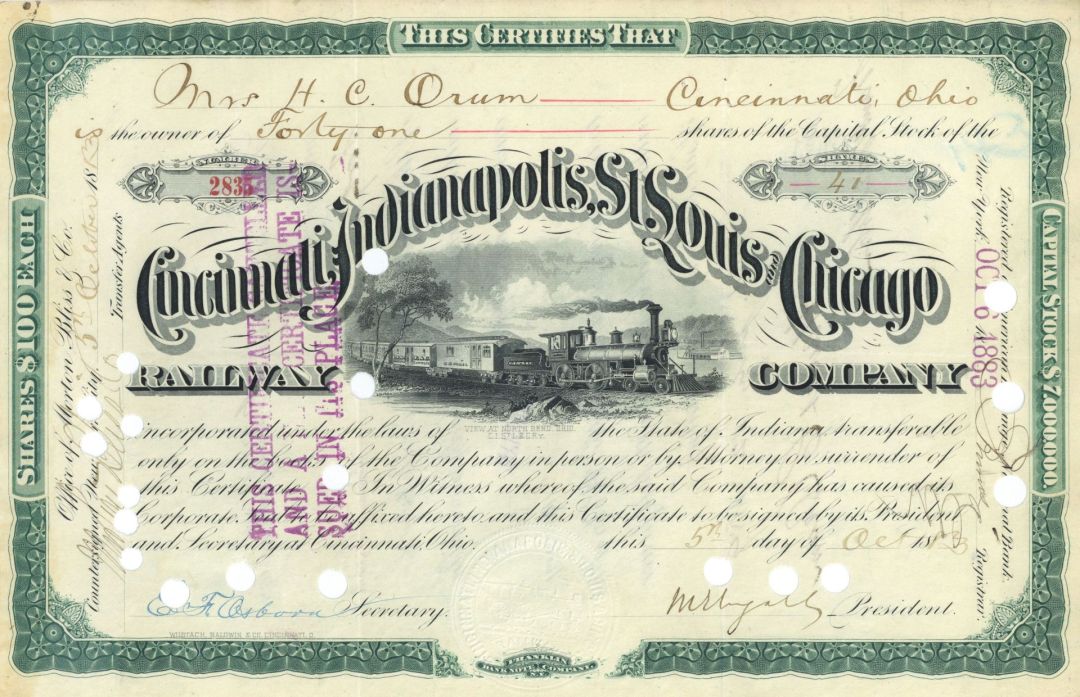 THIS CERTIFIES THAT
Mrs H. C. Orum Cincinnati, Ohio
is the owner of Forty one shares of the Capital Stock of the
NUMBER
2835
SHARES
41
Cincinnati, Indianapolis, St. Louis and Chicago
RAILWAY COMPANY
VIEW AT NORTH BEND OHIO.
C.I.ST.L.& C.RY.
incorporated under the laws of the State of Indiana transferable
only on the of the Company in person or by Attorney on surrender of
this Certificate In Witness whereof the said Company has caused its
Corporate affixed hereto and this Certificate to be signed by its President
and Secretary at Cincinnati, Ohio, this 5th day of Oct 1883
E. F. Osborn Secretary. President.
WILSTACH, BALDWIN & CO. CINCINNATI, O.
FRANKLIN
BANK NOTE COMPANY
N.Y.
SHARES $100 EACH
CAPITAL STOCK $7,000,000.
Office of Morton Bliss & Co.
Transfer Agents
Countersigned 5th October 1883
Registered
New York OCT 6 1883
Bank.
Registrar.
THIS CERTIFICATE
AND A CERTIFICATE IS-
SUED IN ITS PLACE